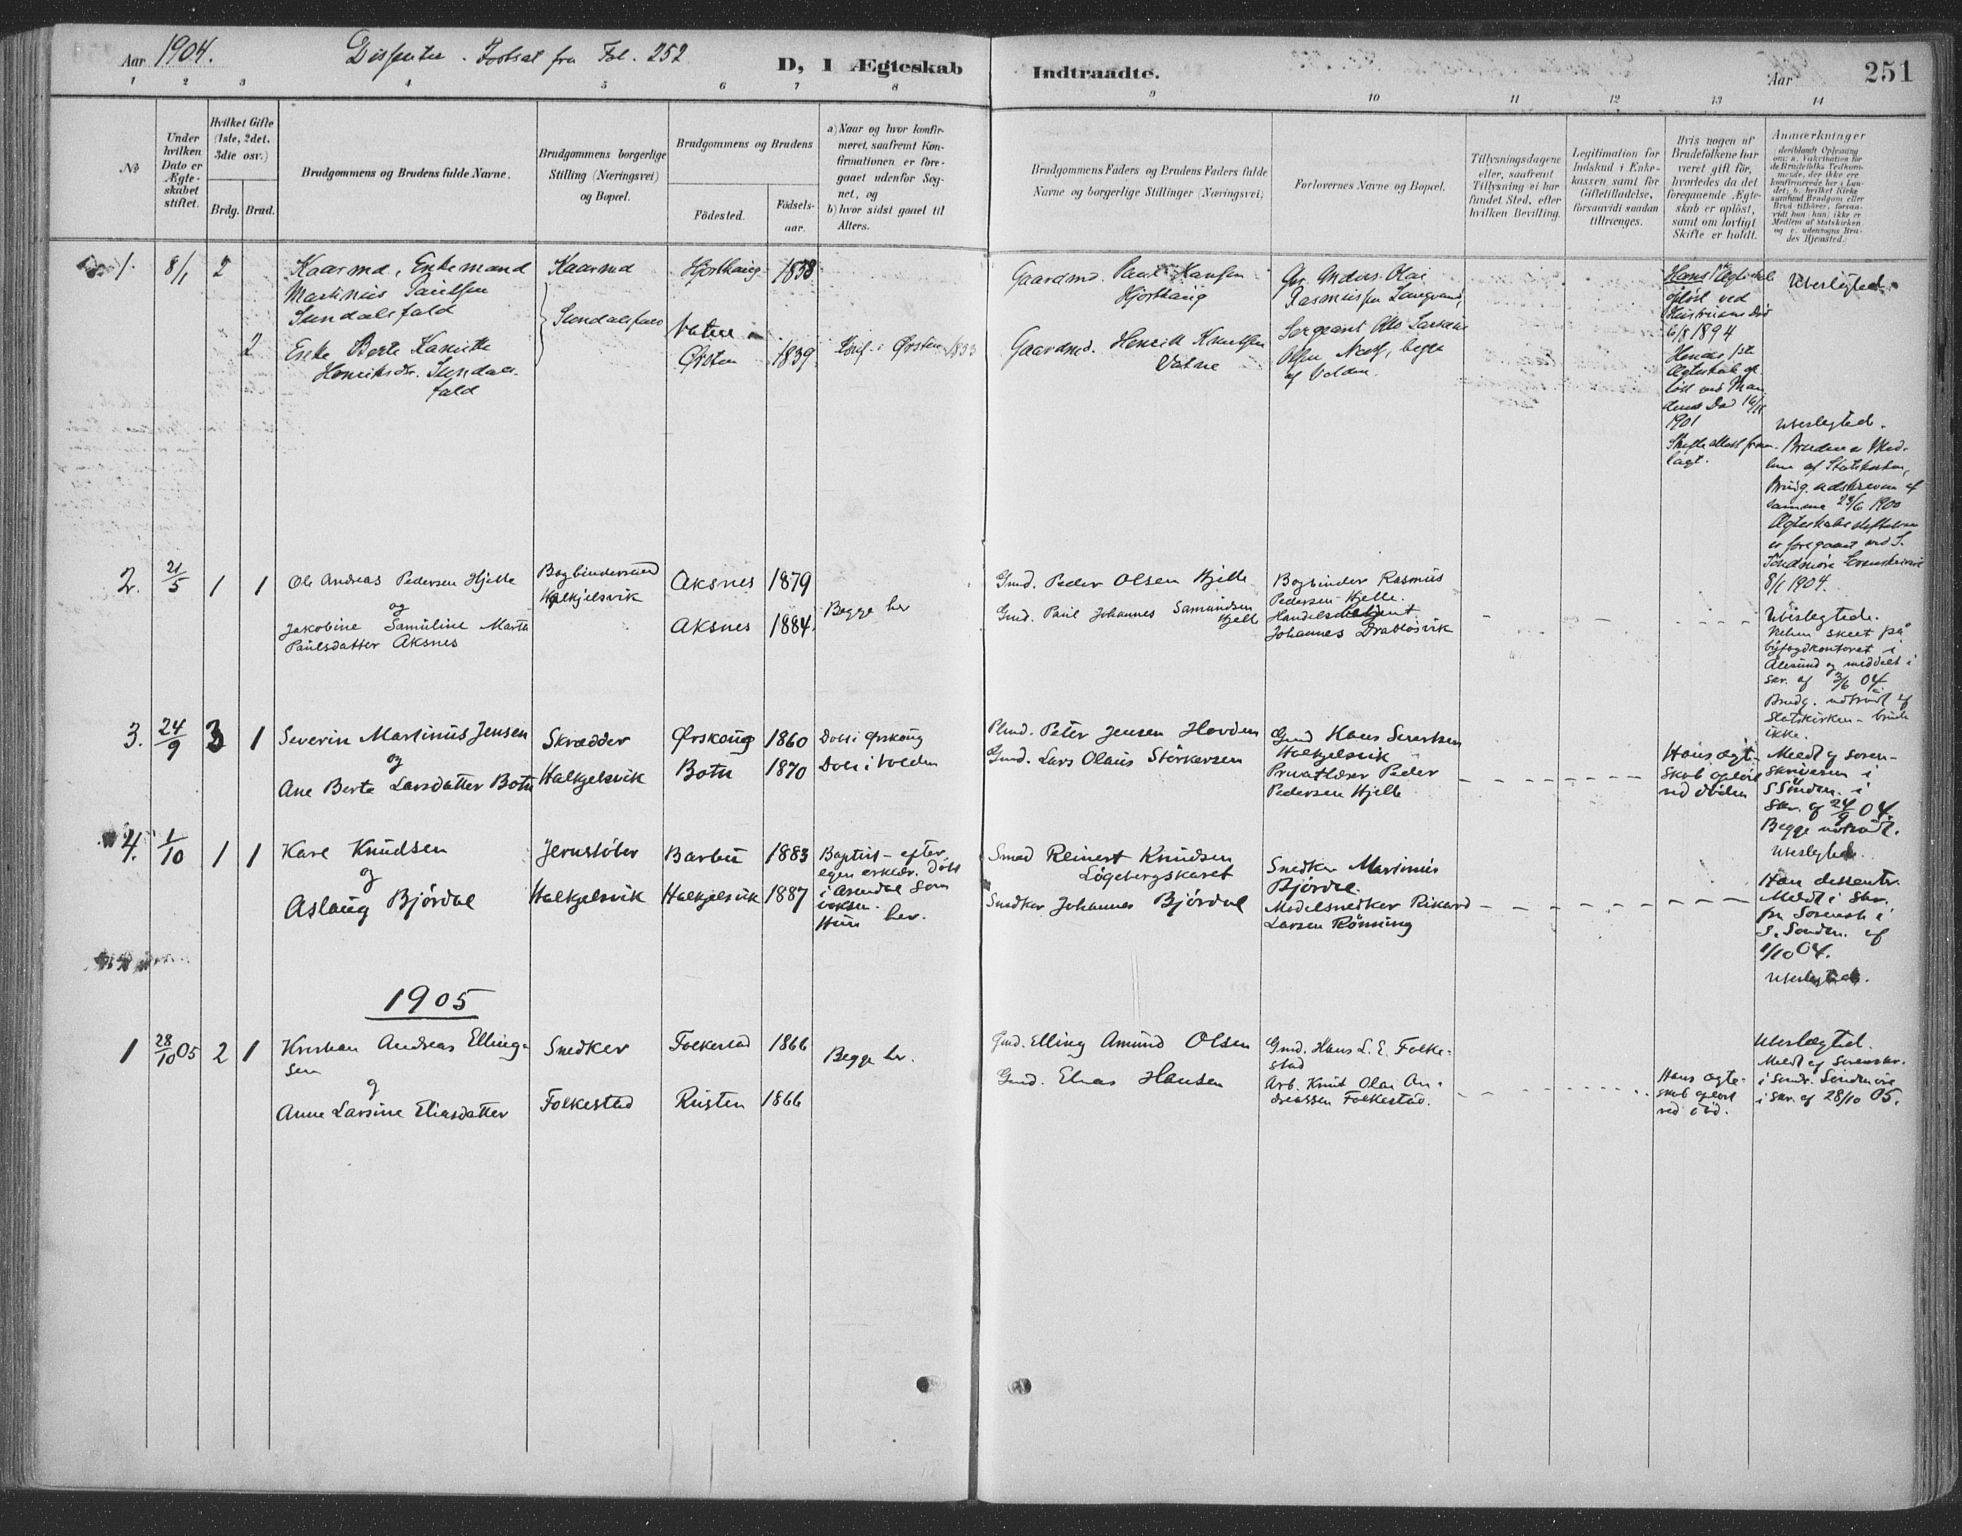 Aar 1904. Dissenter. Fortsat fra Fol. 252
D, I Ægteskab Indtraadte.
Aar 251
1 2 3 4 5 6 7 8 9 10 11 12 13 14
No
Under hvilken Dato er Ægteskabet stiftet.
Hvilket Gifte (1ste, 2det, 3die osv.)
Brdg. Brud.
Brudgommens og Brudens fulde Navne.
Brudgommens borgerlige Stilling (Næringsvei) og Bopæl.
Brudgommens og Brudens
Fødested.
Fødsels-aar.
a) Naar og hvor konfirmeret, saafremt Konfirmationen er foregaaet udenfor Sognet, og
b) hvor sidst gaaet til Alters.
Brudgommens Faders og Brudens Faders fulde Navne og borgerlige Stillinger (Næringsvei)
Forlovernes Navne og Bopæl.
Tillysningsdagene eller, saafremt Tillysning ei har fundet Sted, efter hvilken Bevilling.
Legitimation for Indskud i Enkekassen samt for Giftetilladelse, forsaavidt saadan tiltrænges.
Hvis nogen af Brudefolkene har været gift før, hvorledes da det foregaaende Ægteskab er opløst, samt om lovligt Skifte er holdt.
Anmærkninger
(deriblandt Oplysning om: a. Vakcination for de Brudefolks Vedkommende, der ikke ere konfirmerede her i Landet; b. hvilket Kirkesamfund Brudgom eller Brud tilhører, forsaavidt han (hun) ikke er Medlem af Statskirken, og c. udensogns Brudes Hjemsted.)
1. 8/1 2
Kaarmd, Enkemand
Martinus Paulsen
Sundalsfald
Kaarmd
Sundalsfald
Hjorthaug 1838
Gaardmd. Paul Hansen
Hjorthaug
Gbr. Anders Olai
Rasmussen Langvand,
Hans 1ste Ægteskab
opløst ved
Hustruens Død
6/8 1894
Ubeslegtede
2
Enke Berte Karukke
Henriksdr. Sundals-
fald
Vatne
Ørsten 1839
Konf. i Ørsten
Gaardmd. Henrik Knudsen
Vatne
Sergeant Ole Larsen
begge
af Volden.
Hendes 1ste
Ægteskab op-
løst ved Man-
dens Død 16/11
1901
Skifteattest frem-
lagt.
Ubeslegtede.
Bruden er Med-
lem af Statskirken,
Brudg. udskreven af
samme 29/6 1900
Ægteskabsstiftelsen
er foregaaet ved S.
Søndmøre Sorenskriveri
8/1 1904.
2. 21/5 1 1
Ole Andreas Pedersen Hjelle
og
Jakobine Samuline Marta
Paulsdatter Aksnes
Bogbindersvend
Halkjelsvik
Aksnes 1879
Aksnes 1884.
Begge her
Gmd. Peder Olsen Hjelle
Gmd. Paul Johannes Samundsen
Hjelle
Bogbinder Rasmus
Pedersen Hjelle.
Handelsbetjent
Johannes Drabløsvik
Ubeslegtede.
Vielsen skeet på
byfogdkontoret i
Ålesund og meddelt i
skr. af 3/6 04
Brudg. udtrådt af
statskirken - brud
ikke.
3. 24/9 3 1
Severin Martinus Jensen
og
Ane Berte Larsdatter Botn
Skrædder
Halkjelsvik
Ørskoug 1860
Botn 1870
Døbt i Ørskoug
Døbt i Volden
Plmd. Peter Jensen Hovden
Gmd. Lars Olaus Størkersen
Gmd Hans Severtsen
Halkjelsvik
Privatlærer Peder
Pedersen Hjelle
Hans ægt-
skab opløst
ved døden
Meldt af soren-
skriveren i
S. Søndm. i
skr. af 24/9 04.
Begge udtrådt.
Ubeslegtede.
4. 1/10 1 1
Karl Knudsen
og
Aslaug Bjørdal
Jernstøber
Halkjelsvik
Barbu 1883
Halkjelsvik 1887
Baptist - efter
egen erklær. døbt
i Arendal som
voksen.
Hun her.
Smed Reinert Knudsen
Løgebergskaret
Snedker Johannes Bjørdal
Snedker Martinus
Bjørdal.
Modelsnedker Rikard
Larsen Rønning
Han dissentr.
Meldt i skr.
fra Sorensk. i
S. Søndm. af
1/10 04.
Ubeslegtede.
1905
1 28/10 05 2 1
Kristian Andreas Elling-
sen
og
Anne Larsine Eliasdatter
Snedker
Folkestad
Folkestad 1866
Rusten 1866
Begge her.
Gmd. Elling Amund Olsen
Gmd. Elias Hansen
Gmd. Hans L. E. Folke-
stad
Arb. Knut Olai An-
dreassen Folkestad.
Hans ægte-
skab opløst
ved død.
Ubeslægtet.
Meldt af Sorenskr.
i Søndre Søndmøre
i skr. af 28/10 05.